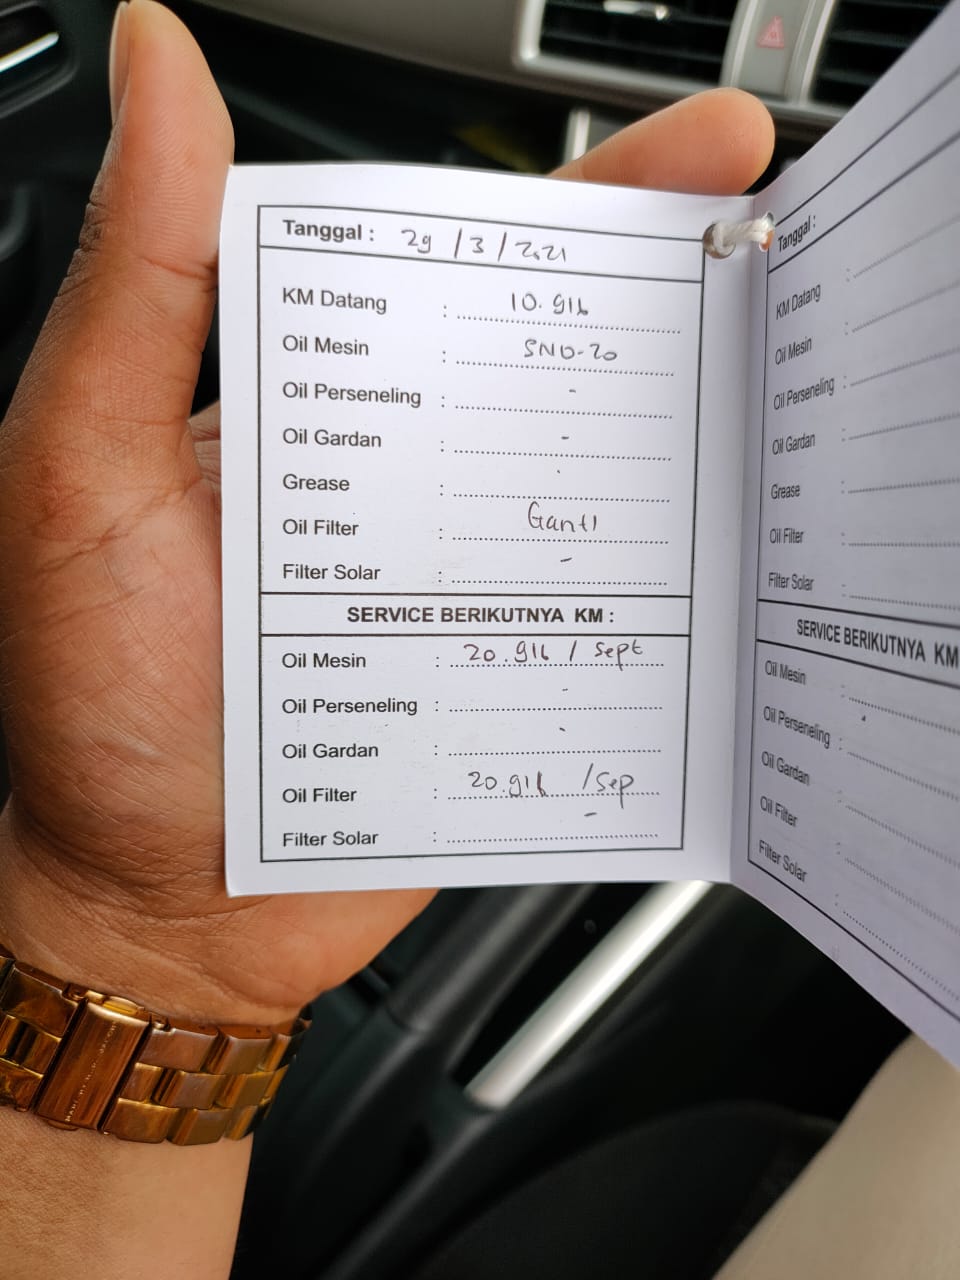 Tanggal : 29 / 3 / 2021
KM Datang : 10.916
Oil Mesin : SN0-20
Oil Perseneling : -
Oil Gardan : -
Grease : -
Oil Filter : Ganti
Filter Solar : -
SERVICE BERIKUTNYA KM :
Oil Mesin : 20.916 / Sept
Oil Perseneling : -
Oil Gardan : -
Oil Filter : 20.916 / Sep
Filter Solar : -
Tanggal :
KM Datang :
Oil Mesin :
Oil Perseneling :
Oil Gardan :
Grease :
Oil Filter :
Filter Solar :
SERVICE BERIKUTNYA KM
Oil Mesin :
Oil Perseneling :
Oil Gardan :
Oil Filter :
Filter Solar :